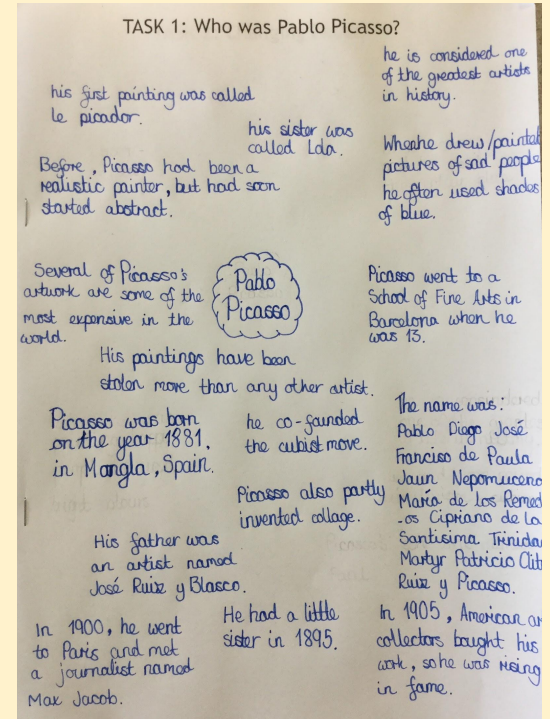 TASK 1: Who was Pablo Picasso?
he is considered one
of the greatest artists
in history.
his first painting was called
le picador.
his sister was
called Lda.
Before, Picasso had been a
realistic painter, but had soon
started abstract.
When he drew/painted
pictures of sad people
he often used shades
of blue.
Several of Picasso's
artwork are some of the
most expensive in the
world.
Pablo
Picasso
Picasso went to a
School of Fine Arts in
Barcelona when he
was 13.
His paintings have been
stolen more than any other artist.
Picasso was born
on the year 1881,
in Mangla, Spain.
he co-founded
the cubist move.
The name was:
Pablo Diego José
Franciso de Paula
Jaun Nepomuceno
María de los Remed
-os Cipriano de la
Santisima Trinida
Martyr Patricio Clit
Ruiz y Picasso.
Picasso also partly
invented collage.
His father was
an artist named
José Ruiz y Blasco.
In 1900, he went
to Paris and met
a journalist named
Max Jacob.
He had a little
sister in 1895.
In 1905, American ar
collectors bought his
work, so he was rising
in fame.